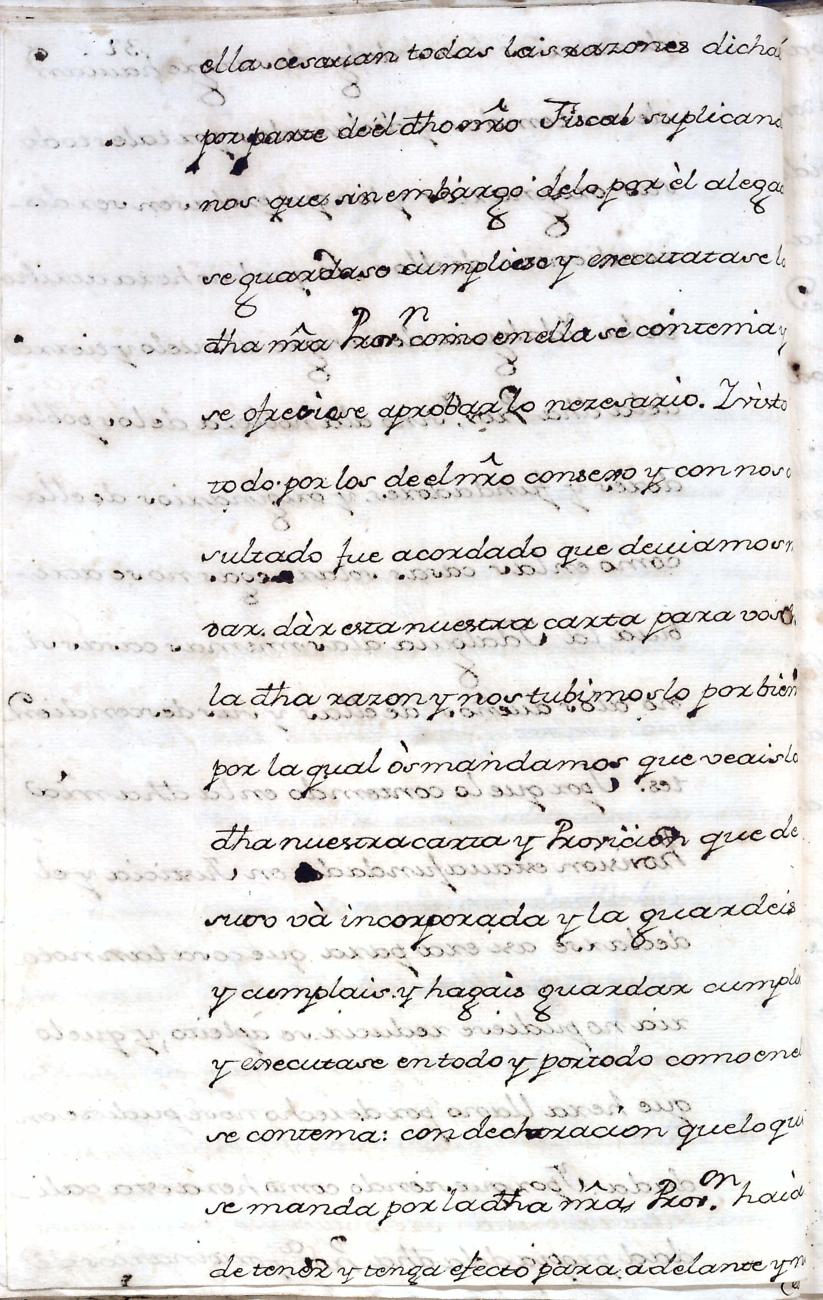 ella cesarian todas las razones dichas
por parte de èl dho nrõ Fiscal suplicand
nos que sin embargo delo por èl alega
se guardase cumpliese y executatase l
dha nrã Prov.n como en ella se contenia y
se ofreciose aprobar lo nezesario. I visto
todo por los de el nrõ consexo y con nos
sultado fue acordado que deuiamos
dar dàr esta nuestra carta para vos
la dha razon y nos tubimoslo por bien
por la qual òs mandamos que veais la
dha nuestra carta y Provicion que de
suso và incorporada y la guardeis
y cumplais y hagais guardar cumpli
y executase en todo y por todo como en el
se contenia: con declaracion que lo qu
se manda por la dha nrã Prov.on haia
de tener y tenga efecto para adelante y n